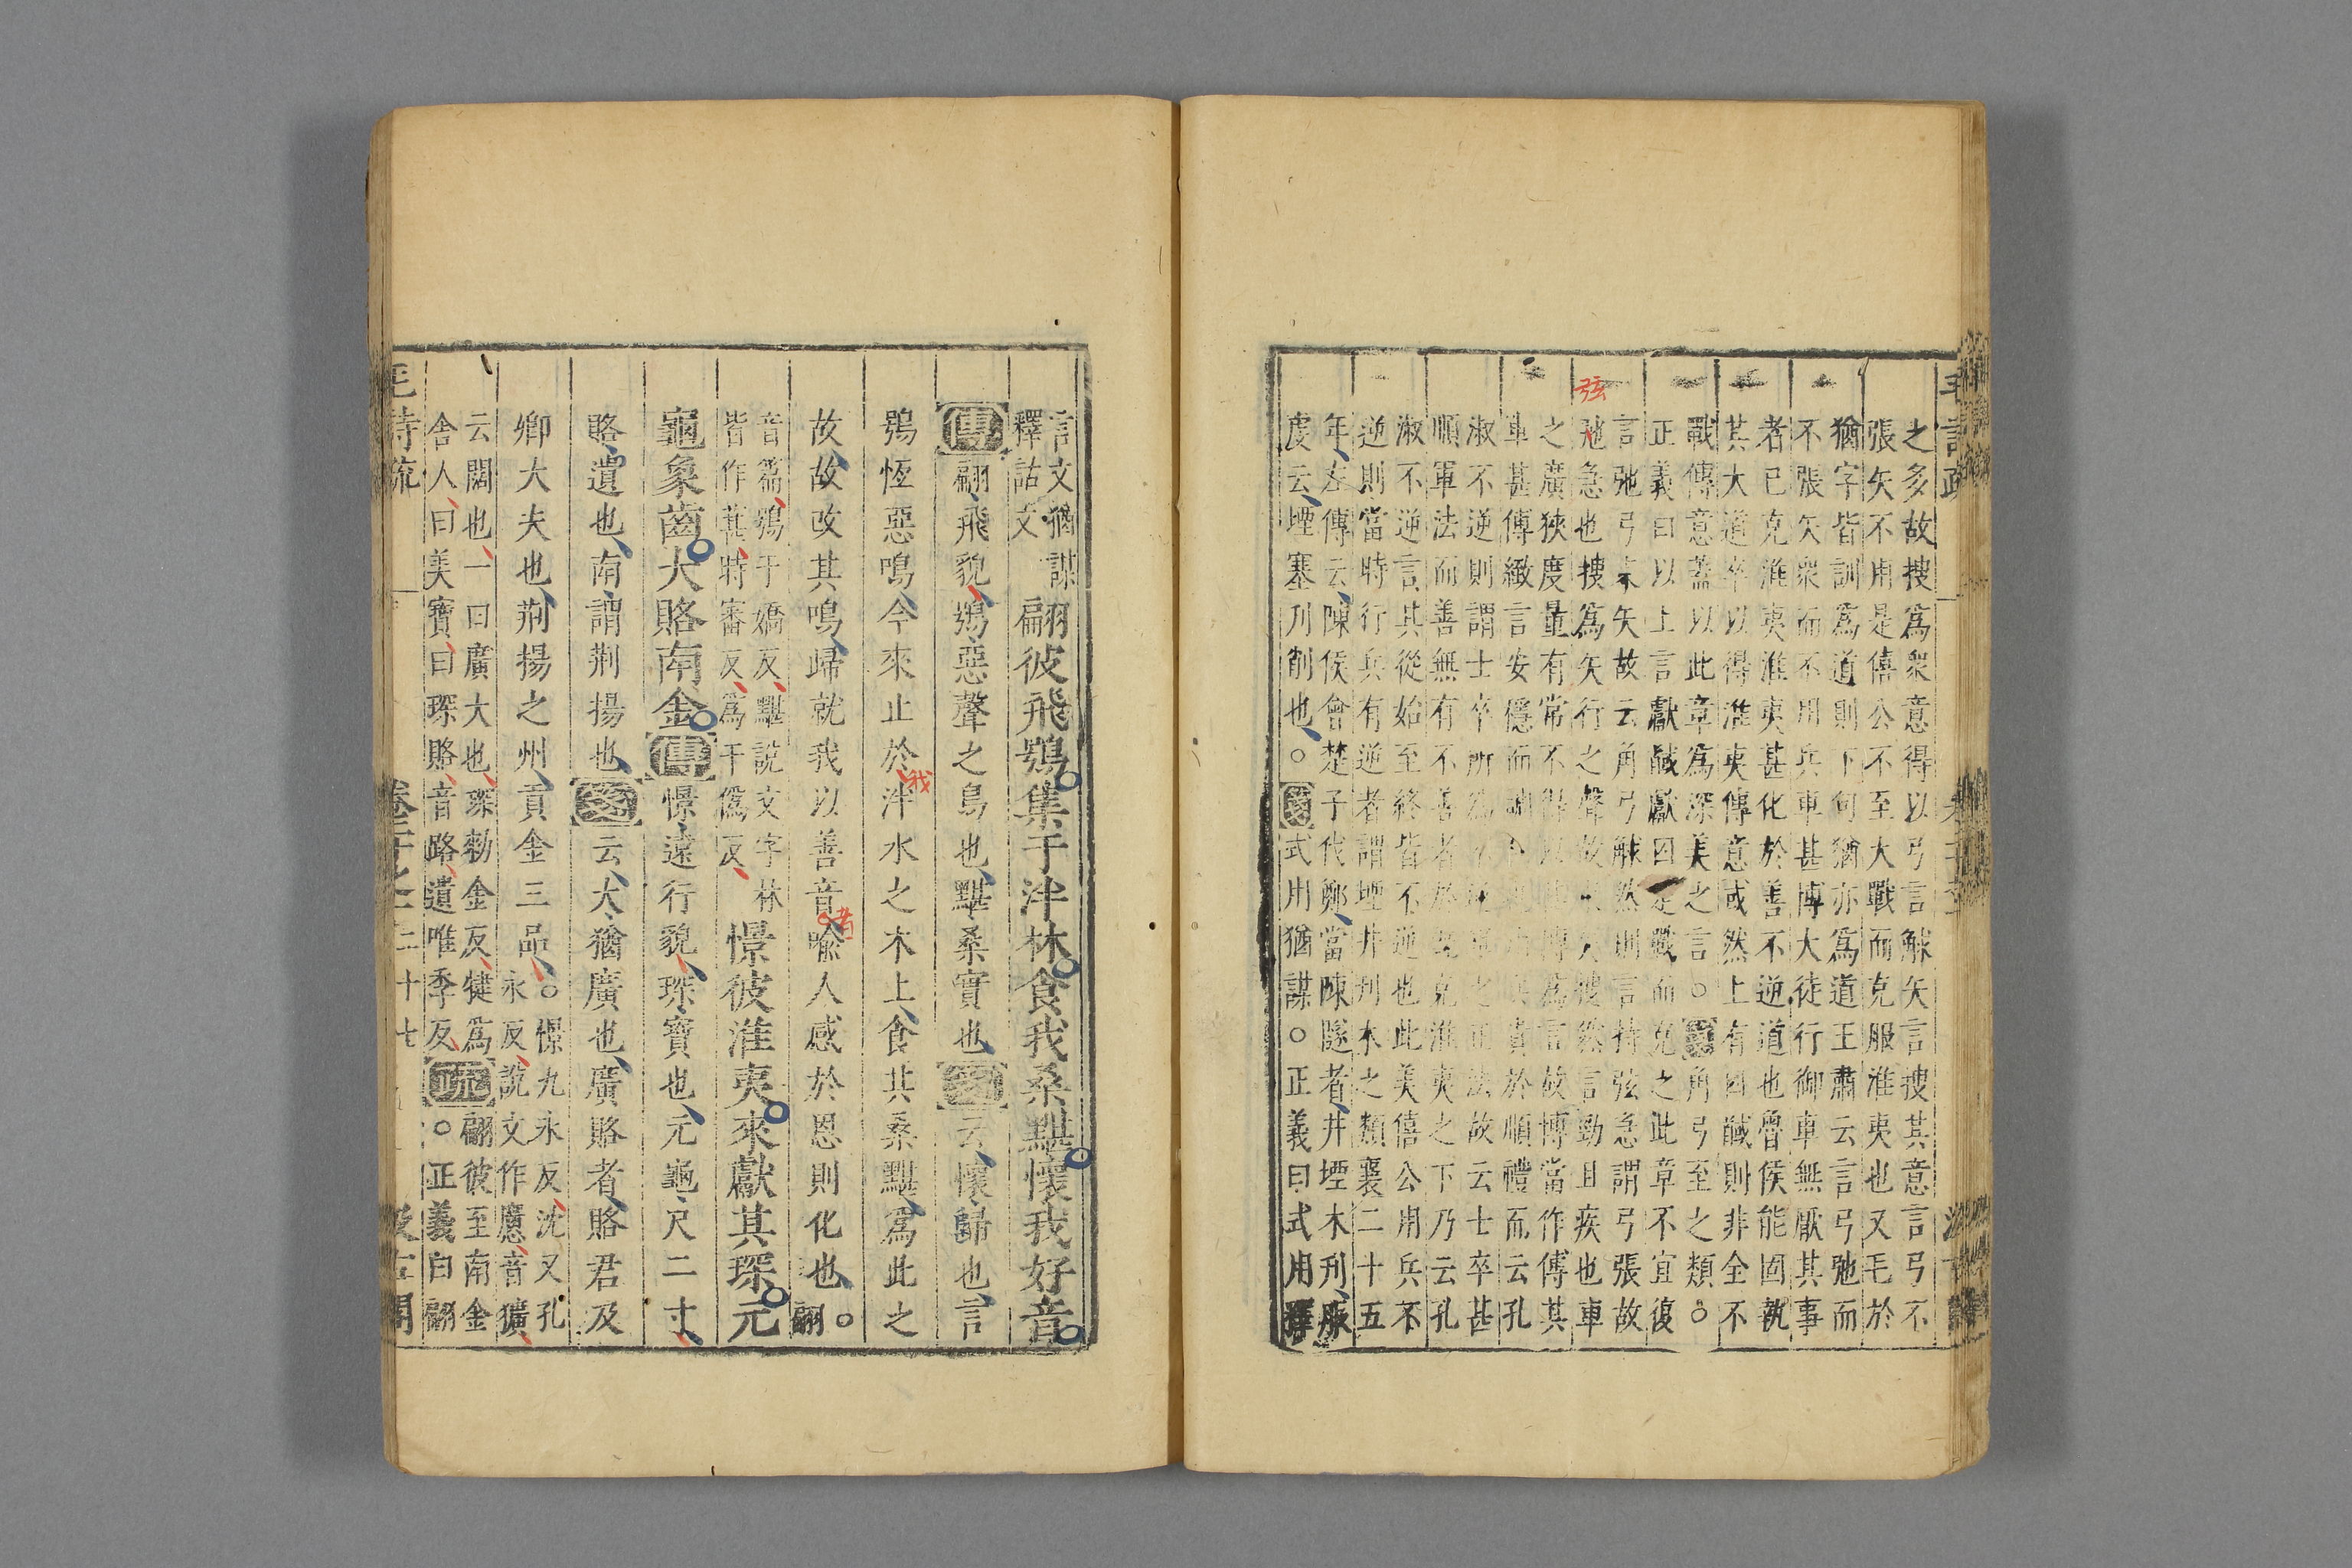 之多故搜爲衆意得以弓言觩矢言搜其意言弓不
張矢不用是僖公不至大戰而克服淮夷也又毛於
猶字皆訓爲道則下句猶亦爲道王肅云言弓弛而
不張矢衆而不用兵車甚博大徒行御車無厭其事
者已克淮夷淮夷甚化於善不逆道也魯侯能固執
其大道卒以得淮夷傳意或然上有囚馘則非全不
戰傳意蓋以此章爲深美之言○箋角弓至之類○
正義曰以上言獻馘獻囚是戰而克之此章不宜復
言弛弓束矢故云角弓觩然則言持弦急謂弓張故
弦
弛急也搜爲矢行之聲故矢搜然言勁且疾也車
之廣狹度量有常不得以博爲言故博當作傅其
車甚傅緻言安穩而調於順禮而云孔
淑不逆則謂士卒所之法故云士卒甚
順軍法而善無有不善者於克淮夷之下乃云孔
淑不逆言其從始至終皆不逆也此美僖公用兵不
逆則當時行兵有逆者謂堙井刋木之類襄二十五
年左傳云陳侯會楚子伐鄭當陳隧者井堙木刋服
虔云堙塞刋削也○箋式用猶謀○正義曰式用釋
言文猶謀
釋詁文
翩彼飛鴞集于泮林食我桑黮懷我好音
傳翩飛貌鴞惡聲之鳥也黮桑實也箋云懷歸也言
鴞恆惡鳴今來止於泮水之木上食其桑黮爲此之
我
故故改其鳴歸就我以善音喩人感於恩則化也○翩
者
音篇鴞于嬌反黮說文字林
皆作葚時審反爲于僞反
憬彼淮夷來獻其琛元
龜象齒大賂南金傳憬遠行貌琛寶也元龜尺二寸
賂遺也南謂荆揚也箋云大猶廣也廣賂者賂君及
卿大夫也荆揚之州貢金三品○憬九永反沈又孔
永反說文作懬音獷
云闊也一曰廣大也琛勑金反犍爲
舍人曰美寶曰琛賂音路遺唯季反
疏翩彼至南金
○正義曰翩
毛詩疏
二十七